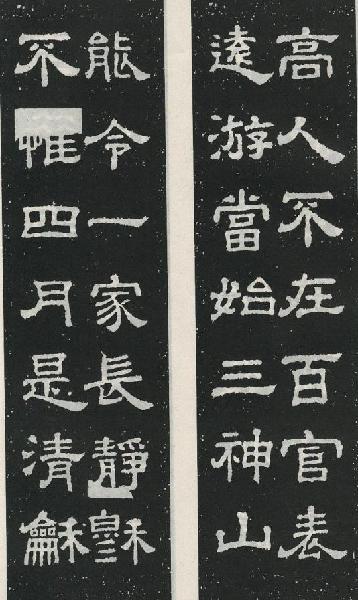 高人不在百官表
遠游當始三神山
能令一家長靜穆
不惟四月是清龢